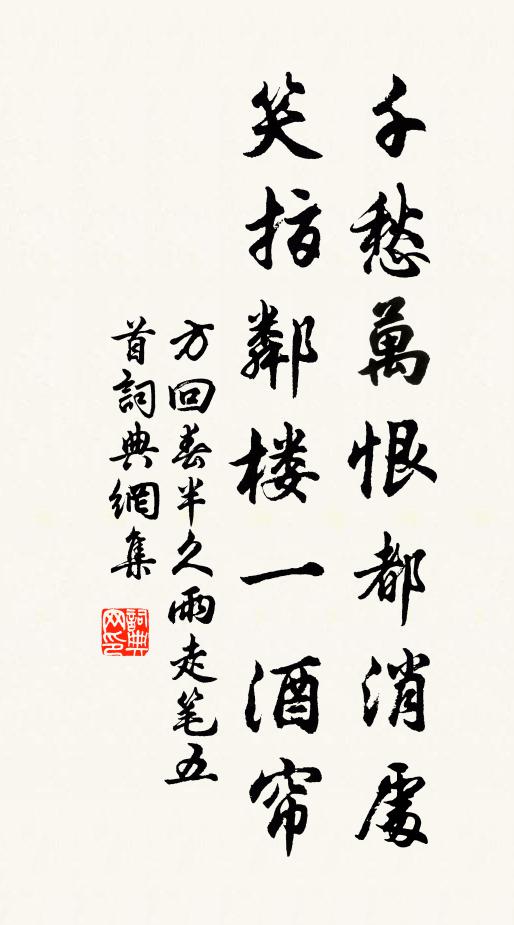 千愁萬恨都消處
笑指鄰楼一酒帘
方回春半久雨走笔五
首詞典網集
詞典网印